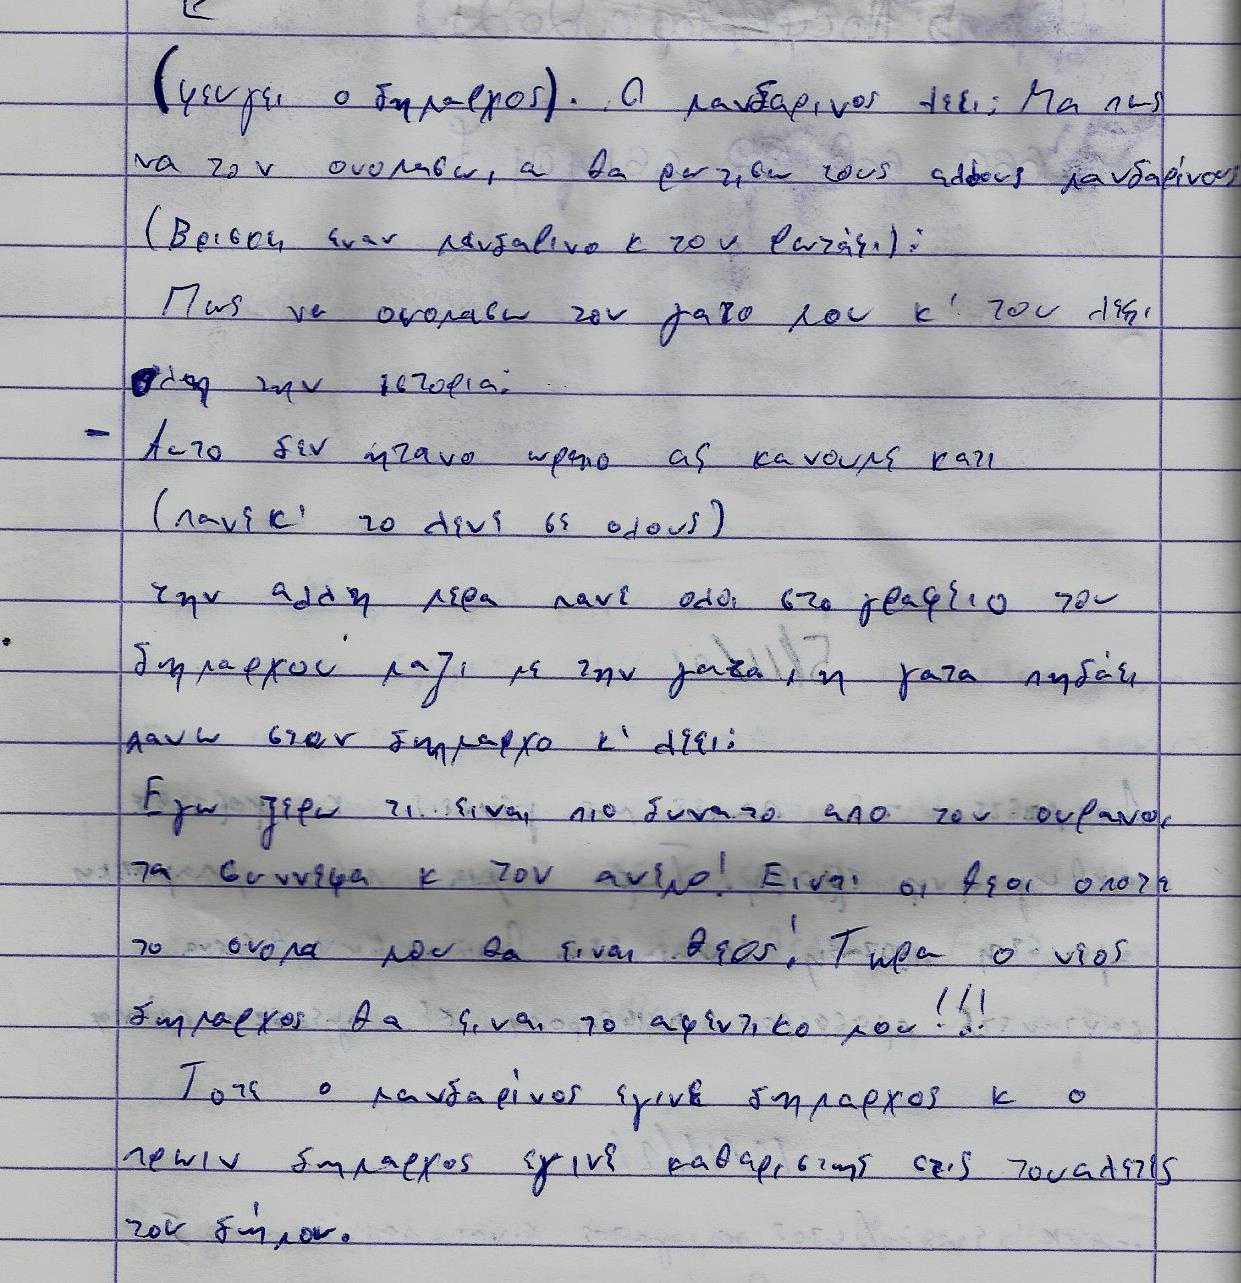 (φευγει ο δημαρχος). Ο μανδαρινος λεει: Μα πως
να τον ονομασω, α θα ρωτισω τους αλλους μανδαρίνους
(Βρισκει εναν μανδαρινο κ τον ρωτάει):
Πως να ονομασω τον γατο μου κ' του λεει
ολη την ιστορια:
- Αυτο δεν ητανο ωραιο ας κανουμε κατι
(πανε κ' το λενε σε ολους)
την αλλη μερα πανε ολοι στο γραφειο του
δημαρχου μαζι με την γατα, η γατα πηδάει
πανω στον δημαρχο κ' λεει:
Εγω ξερω τι ειναι πιο δυνατο απο τον ουρανο,
τα συννεφα κ τον ανεμο! Ειναι οι θεοι οποτε
το ονομα μου θα ειναι θεος! Τωρα ο νεος
δημαρχος θα ειναι το αφεντικο μου!!!
Τοτε ο μανδαρίνος εγινε δημαρχος κ ο
πρωιν δημαρχος εγινε καθαριστης στις τουαλετες
του δήμου.